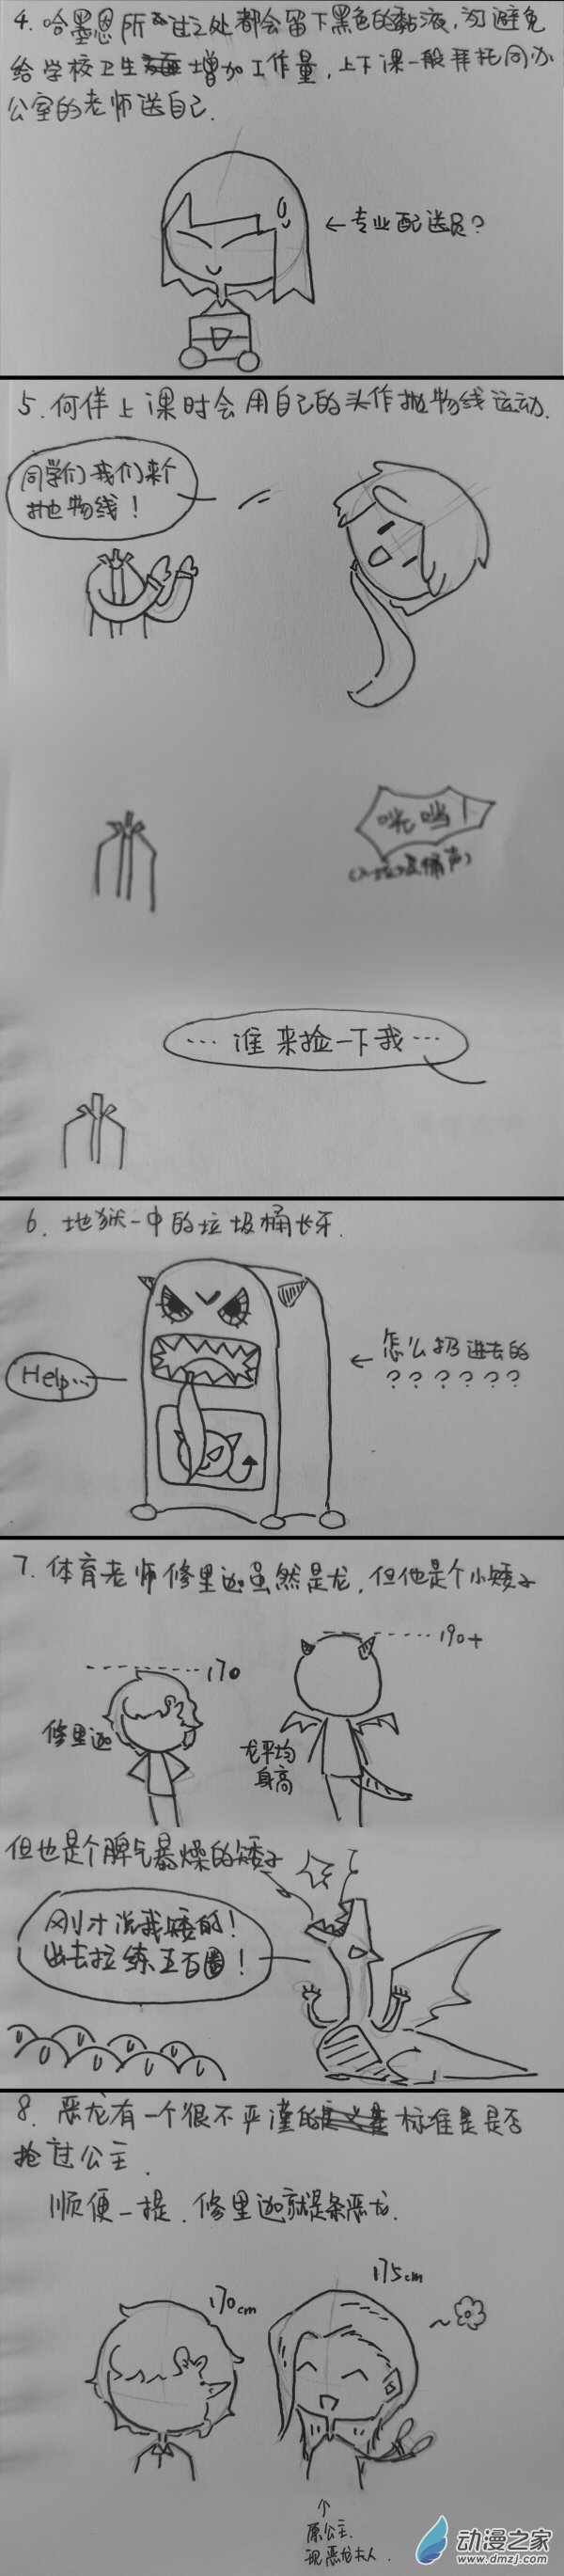 4. 哈墨恩所过之处都会留下黑色的黏液,为避免
给学校卫生增加工作量,上下课一般拜托同办
公室的老师送自己.
←专业配送员?
5. 何佯上课时会用自己的头作抛物线运动.
同学们我们来个
抛物线!
咣当!
…谁来捡一下我…
6. 地狱一中的垃圾桶长牙.
Help...
←怎么扔进去的
??????
7. 体育老师修里迦虽然是龙,但他是个小矮子
170
190+
修里迦
龙平均
身高
但也是个脾气暴燥的矮子
刚才说我矮的!
出去拉练五百圈!
8. 恶龙有一个很不严谨的标准是是否
抢过公主.
顺便一提.修里迦就是条恶龙.
170cm
175cm
~
个
原公主.
现恶龙夫人.
动漫之家
www.dmzj.com